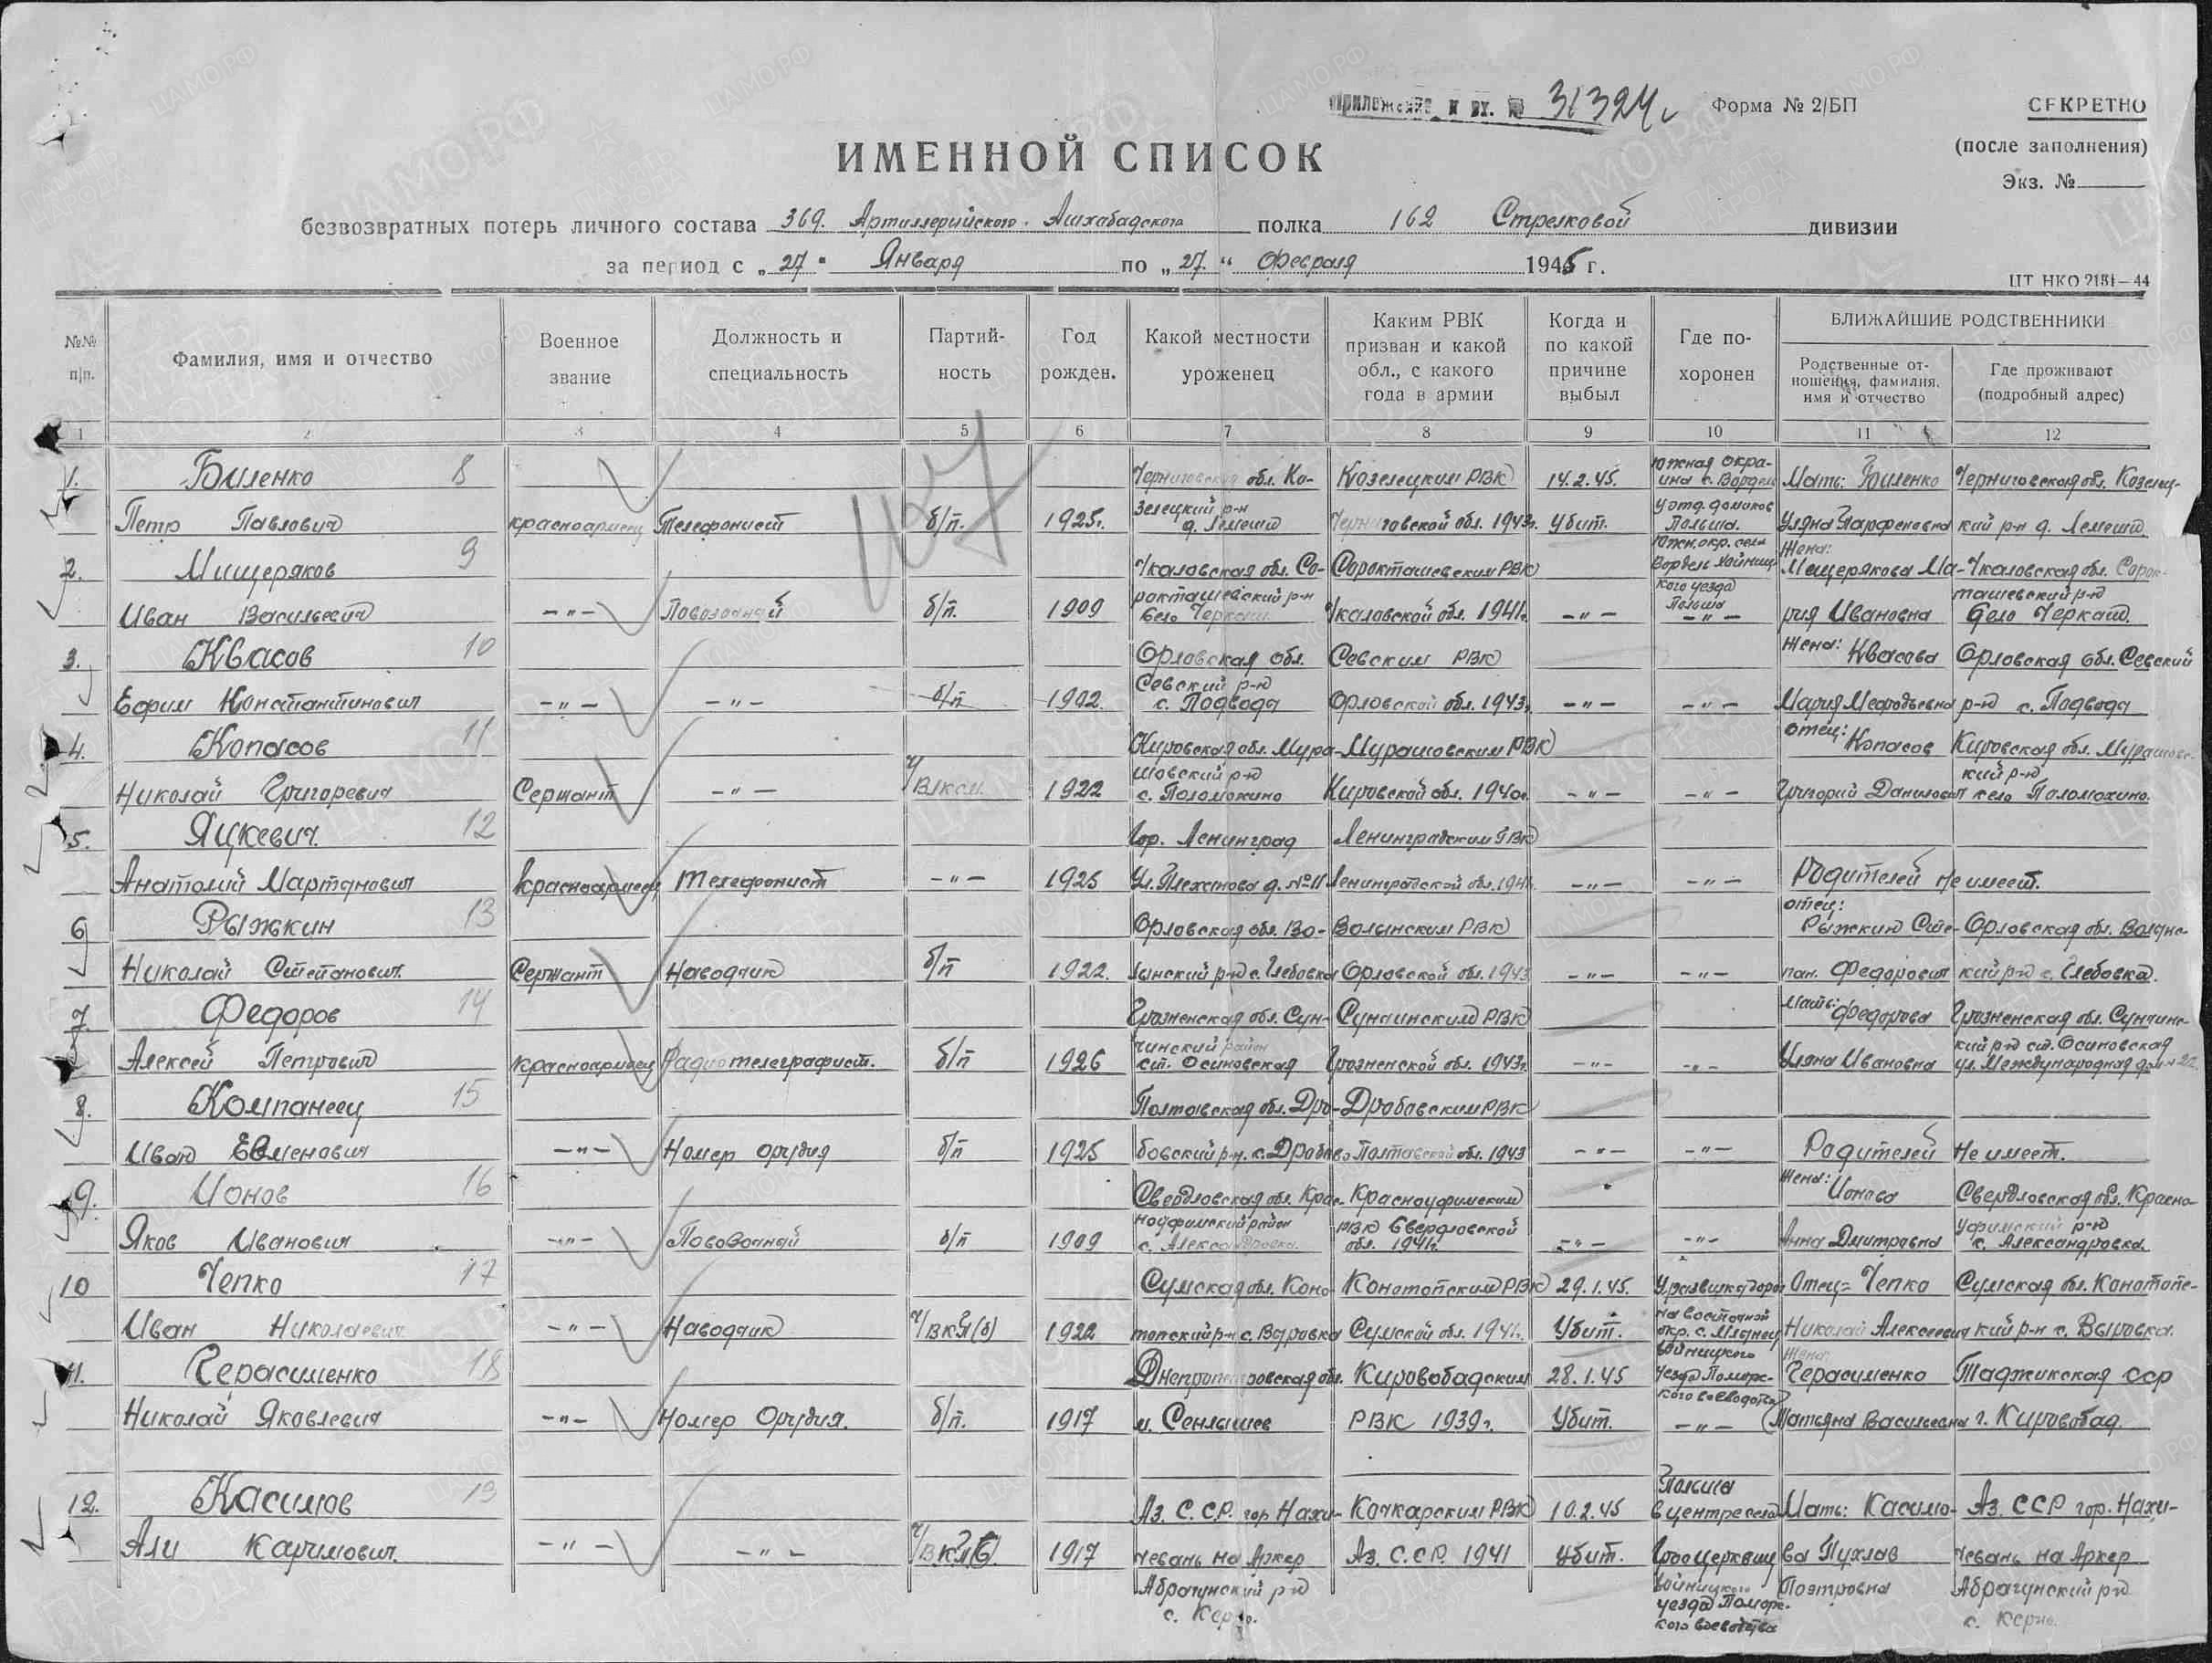 Приложение к вх. № 31324с
Форма № 2/БП
СЕКРЕТНО
(после заполнения)
Экз. №
ИМЕННОЙ СПИСОК
безвозвратных потерь личного состава 369. Артиллерийского. Ашхабадского полка 162 Стрелковой дивизии
за период с „27" Января по „27." Февраля 1945 г.
ЦТ НКО 2151—44
№№ п/п. Фамилия, имя и отчество Военное звание Должность и специальность Партийность Год рожден. Какой местности уроженец Каким РВК призван и какой обл., с какого года в армии Когда и по какой причине выбыл Где похоронен БЛИЖАЙШИЕ РОДСТВЕННИКИ
Родственные отношения, фамилия, имя и отчество Где проживают (подробный адрес)
1 2 3 4 5 6 7 8 9 10 11 12
107
1. Биленко 8 Черниговская обл. Ко- Козелецким РВК 14.2.45. Южная окраина с. Вордель Мать: Биленко Черниговская обл. Козелец-
Петр Павлович красноармеец Телефонист б/п. 1925г. зелецкий р-н д. Лемеши Черниговской обл. 1943г. Убит. у отд. домиков Польша. Уляна Парфеновна кий р-н д. Лемеши.
2. Мищеряков 9 Чкаловская обл. Со- Сорокташевским РВК Южн. окр. села Вордель Войниц- Жена: Мещерякова Ма- Чкаловская обл. Сорок-
Иван Васильевич -"- Повозочный б/п. 1909 рокташевский р-н село Черкаш. Чкаловской обл. 1941г. -"- кого уезда Польша -"- рия Ивановна ташевский р-н село Черкаш.
3. Квасов 10 Орловская обл. Севским РВК Жена: Квасова Орловская обл. Севский
Ефим Константинович -"- -"- б/п 1902. Севский р-н с. Подвода Орловской обл. 1943г. -"- -"- Мария Мефодьевна р-н с. Подвода
4. Копасов 11 Кировская обл. Мура- Мурашовским РВК отец: Копасов Кировская обл. Мурашовс-
Николай Григоревич Сержант -"- Ч/ВЛКСМ. 1922 шовский р-н с. Паломохино Кировской обл. 1940г. -"- -"- Григорий Данилович кий р-н село Паломохино.
5. Яцкевич. 12 Гор. Ленинград Ленинградским РВК
Анатолий Мартынович Красноармеец Телефонист -"- 1925 Ул. Плеханова д. №11 Ленинградской обл. 194 -"- -"- Родителей не имеет.
6 Рыжкин 13 Орловская обл. Во- Волынским РВК отец: Рыжкин Сте- Орловская обл. Волынс-
Николай Степанович. Сержант Наводчик б/п 1922. лынский р-н с. Глебовка Орловской обл. 1943 -"- -"- пан. Федорович кий р-н с. Глебовка.
7. Федоров 14 Грозненская обл. Сун- Сунчинским РВК Мать: Федорова Грозненская обл. Сунчинс-
Алексей Петрович Красноармеец Радиотелеграфист. б/п 1926 чинский район ст. Осиновская Грозненской обл. 1943г. -"- -"- Уляна Ивановна кий р-н ст. Осиновская ул. Международная дом
8. Компанеец 15 Полтавская обл. Дра- Драбовским РВК
Иван Евменович -"- Номер орудия б/п 1925 бовский р-н. с. Драбово Полтавской обл. 1943 -"- -"- Родителей не имеет.
9. Ионов 16 Свердловская обл. Крас- Красноуфимским Жена: Ионова Свердловская обл. Красно-
Яков Иванович -"- Повозочный б/п 1909 ноуфимский район с. Александровка. РВК Свердловской обл. 1941г. -"- -"- Анна Дмитровна Уфимский р-н с. Александровка.
10 Чепко 17 Сумская обл. Коно- Конотопским РВК 29.1.45. У развилки дорог Отец= Чепко Сумская обл. Конотопс-
Иван Николаевич -"- Наводчик Ч/ВКП(б) 1922 топский р-н с. Выровка Сумской обл. 1941г. Убит. на восточной окр. с. Войницкого Николай Алексеевич кий р-н с. Выровка.
11. Герасименко 18 Днепропетровская обл. Кировобадским 28.1.45 уезда Поморского воеводства Жена: Герасименко Таджикская ССР
Николай Яковлевич -"- Номер Орудия. б/п. 1917 РВК 1939г. Убит. -"- Татьяна Васильевна г. Кировобад.
12. Касимов 19 Аз. С.С.Р. гор Нахи- Кочкарским РВК 10.2.45 Польша в центре села Мать: Касимо- Аз. ССР гор. Нахи-
Али Каримович. -"- -"- Ч/ВКП(б). 1917 чевань на Аркер Аз. С.С.Р. 1941 Убит. ва чевань на Аркер
Абрагунский р-н Войницкого Поэтровна Абрагунский р-н
с. уезда Поморс- с.
кого воеводства